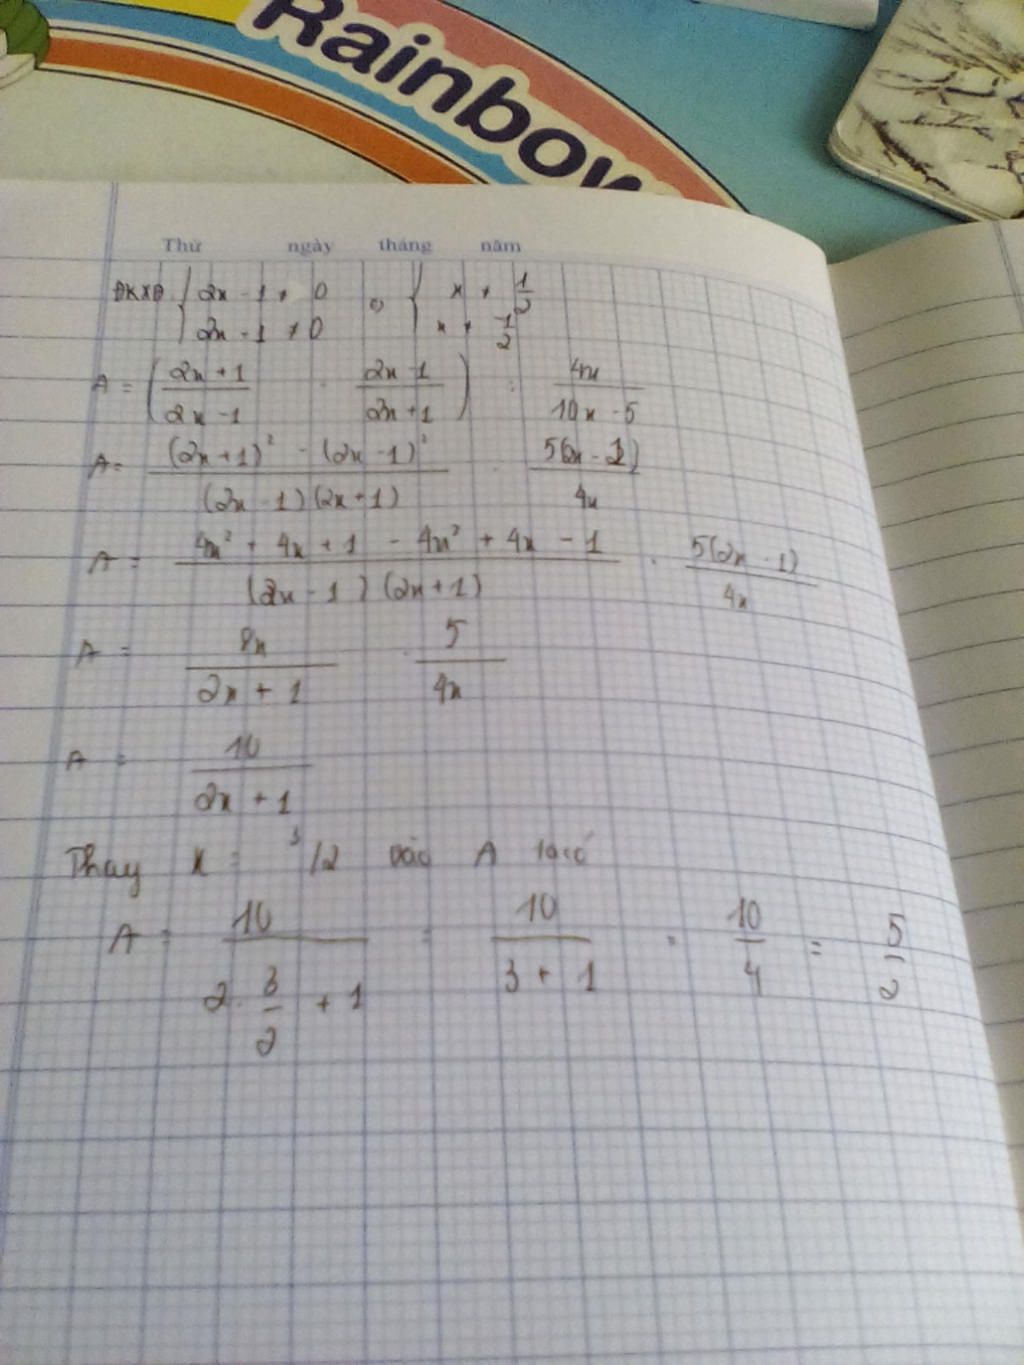 Rainbow
Thứ ngày tháng năm
ĐKXĐ { 2x - 1 ≠ 0 ⇔ { x ≠ 1/2
2x - 1 ≠ 0 x ≠ 1/2
A = ( (2x + 1)/(2x - 1) - (2x - 1)/(2x + 1) ) : 4x/(10x - 5)
A = ((2x + 1)² - (2x - 1)²)/((2x - 1)(2x + 1)) . 5(2x - 1)/4x
A = (4x² + 4x + 1 - 4x² + 4x - 1)/((2x - 1)(2x + 1)) . 5(2x - 1)/4x
A = 8x/(2x + 1) . 5/4x
A = 10/(2x + 1)
Thay x = 3/2 vào A ta có
A = 10/(2 . 3/2 + 1) = 10/(3 + 1) = 10/4 = 5/2